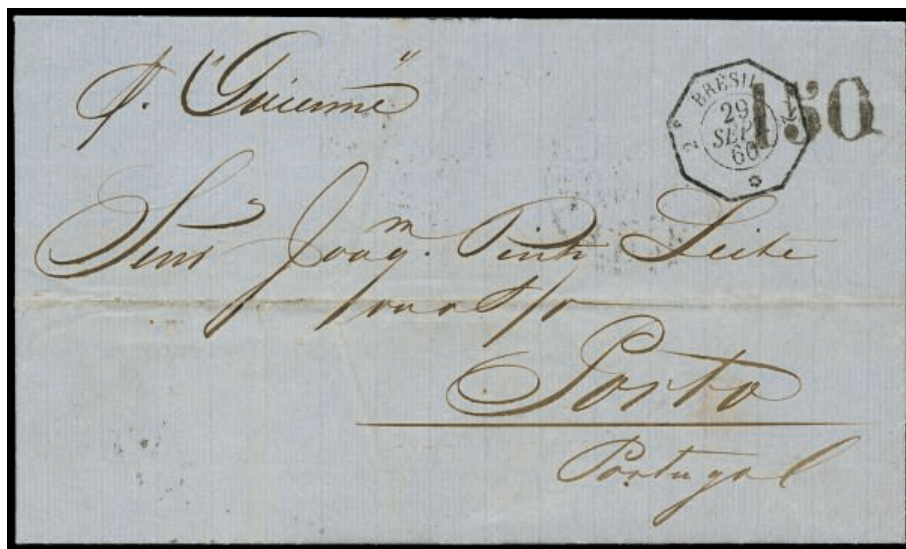 p. "Guienne"
BRESIL
29
SEP
60
150
Senr Joaqm. Pinto Leite
Porto
Portugal